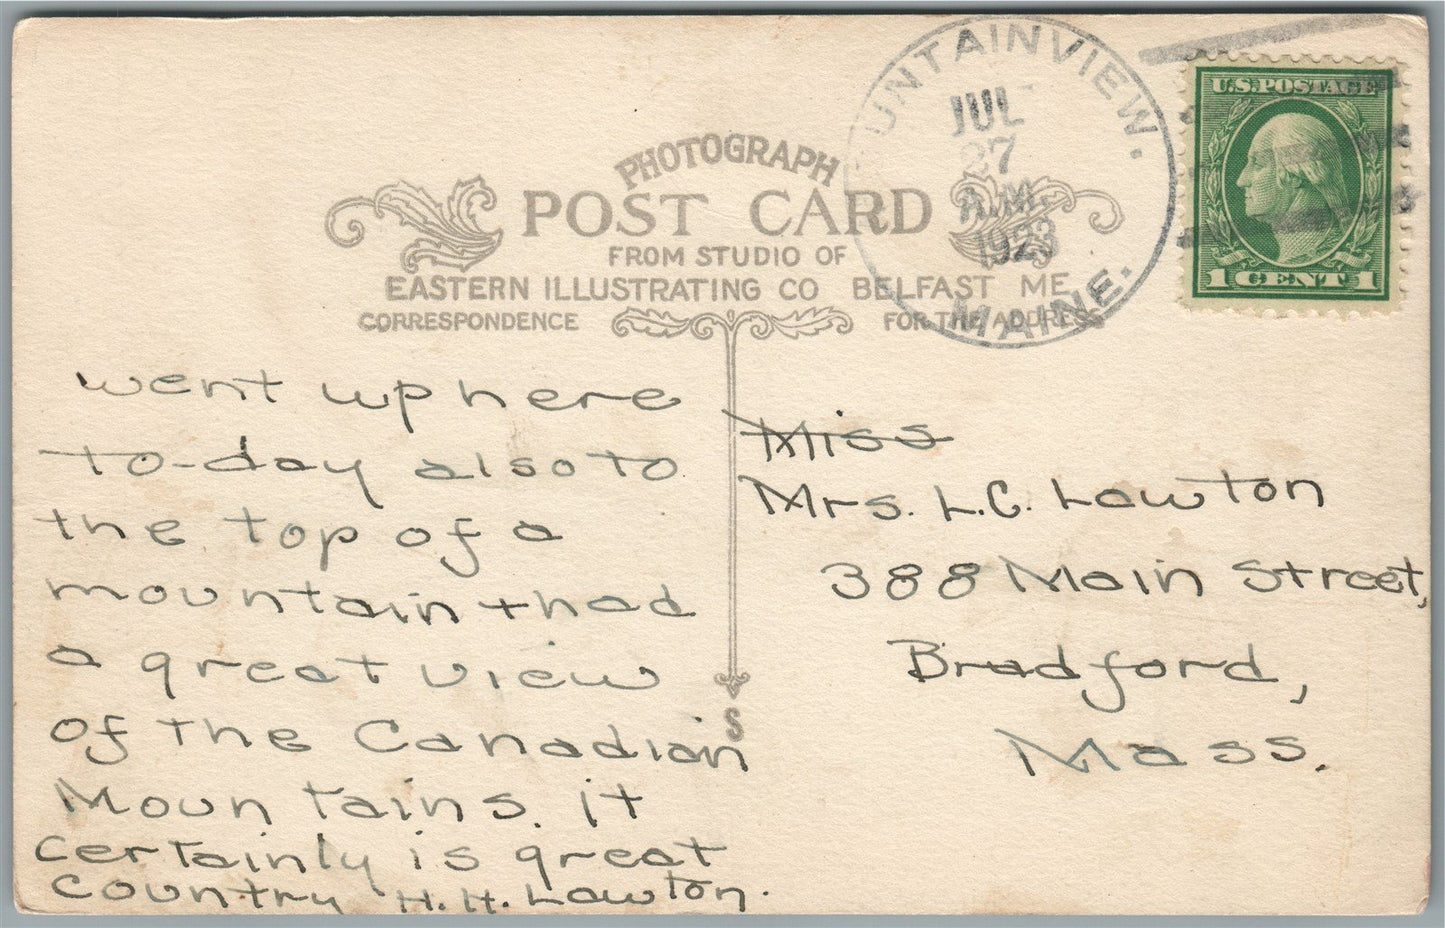 UNTAINVIEW.
JUL
27
A.M.
1923
MAINE.
U.S. POSTAGE
1 CENT 1
PHOTOGRAPH
POST CARD
FROM STUDIO OF
EASTERN ILLUSTRATING CO BELFAST ME
CORRESPONDENCE
FOR THE ADDRESS
went up here
to-day also to
the top of a
mountain + had
a great view
of the Canadian
Mountains. it
certainly is great
country H.H. Lawton.
S
Miss
Mrs. L.C. Lawton
388 Main Street,
Bradford,
Mass.